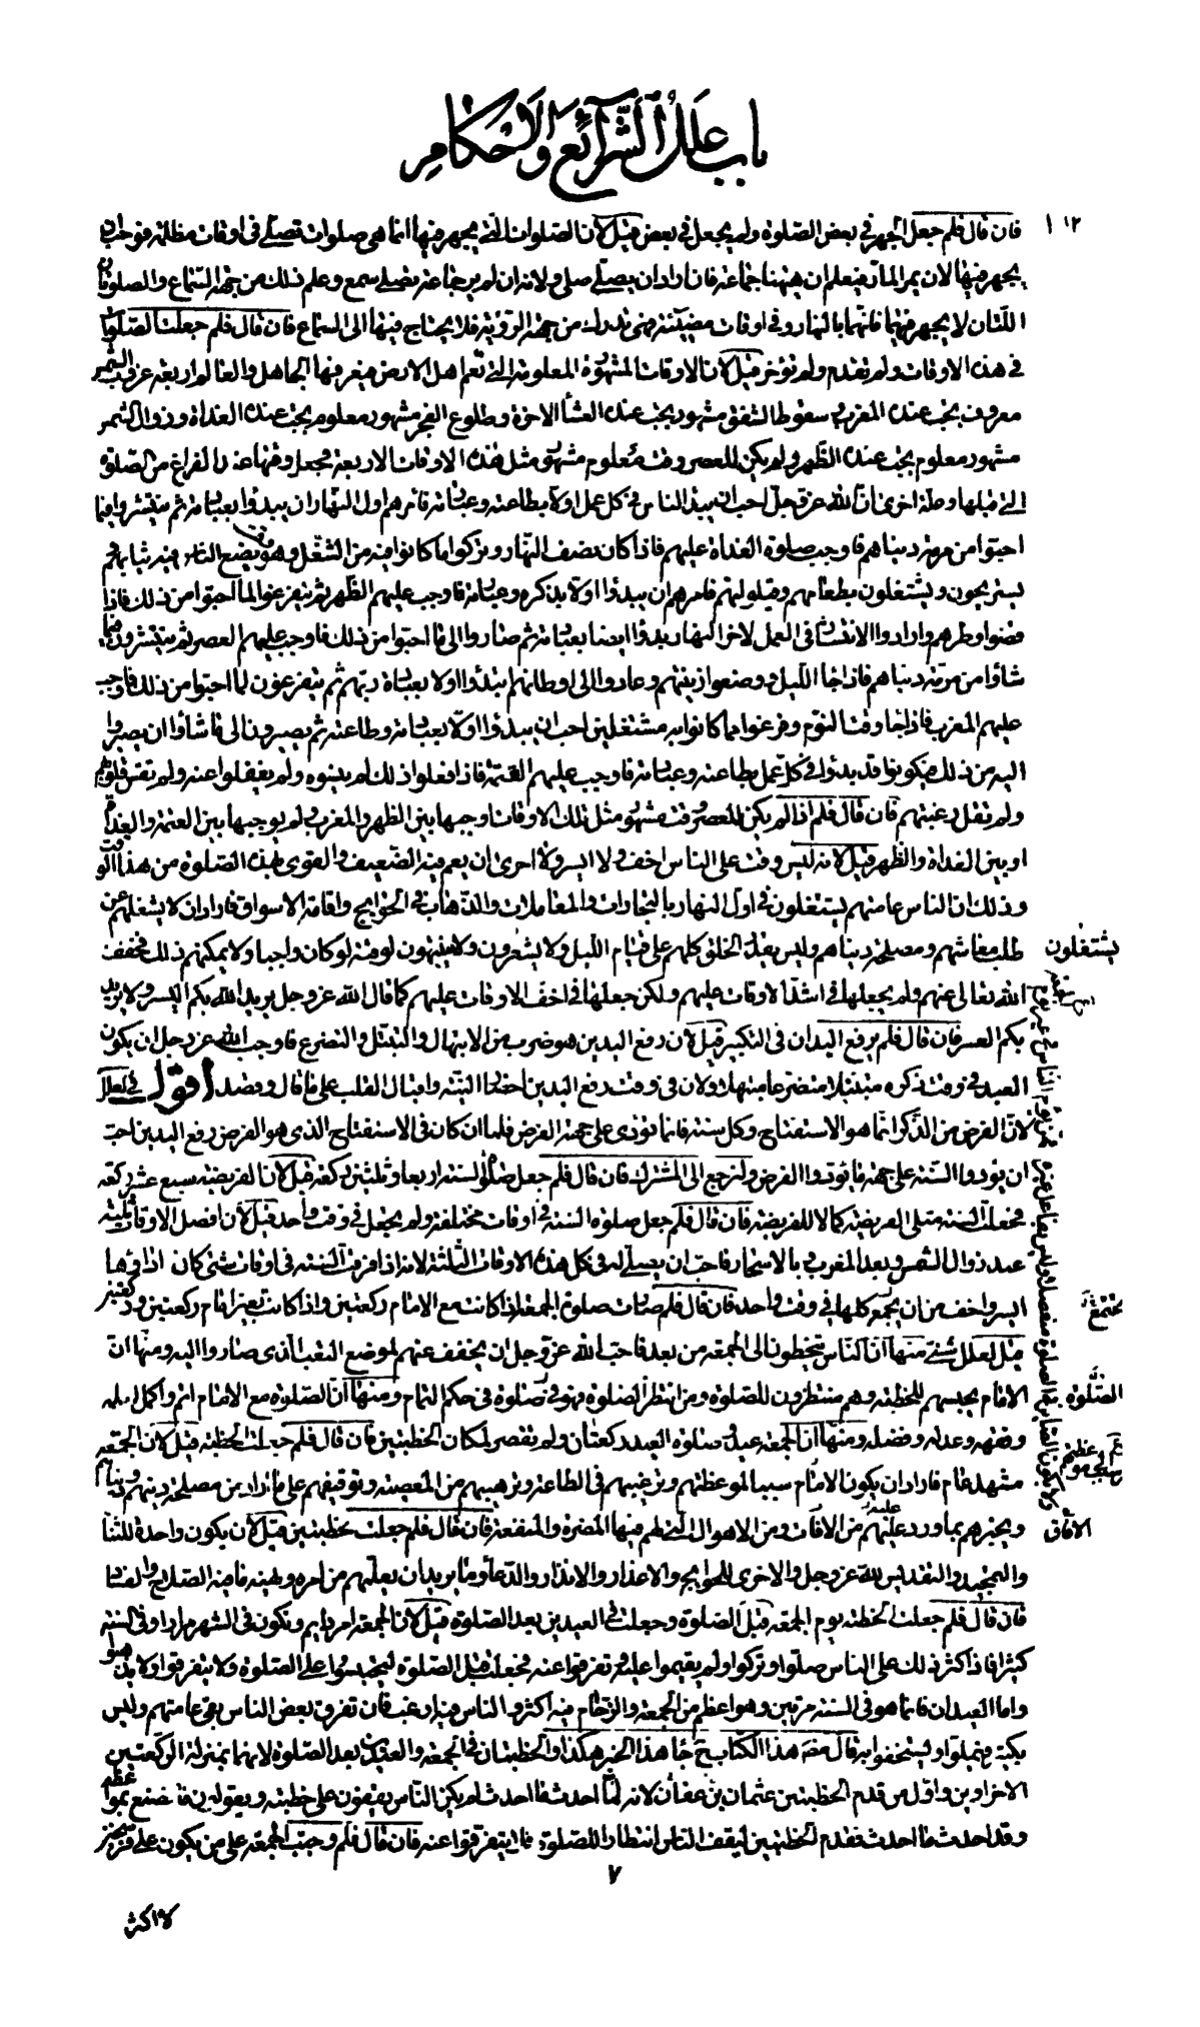 باب علل الشرائع والاحكام
١١٢
فان قال فلم جعل الجهر فى بعض الصلوة ولم يجعل فى بعض قيل لان الصلوات التى يجهر فيها انما هى صلوات تصلى فى اوقات مظلمة فوجب ان
يجهر فيها لان يمر المار فيعلم ان ههنا جماعة فان اراد ان يصلى صلى ولانه ان لم ير جماعة تصلى سمع وعلم ذلك من جهة السماع والصلوتان
اللتان لا يجهر فيهما فانهما بالنهار وفى اوقات مضيئة فهى تدرك من جهة الرؤية فلا يحتاج فيها الى السماع فان قال فلم جعلت الصلوات
فى هذه الاوقات ولم تقدم ولم تؤخر قيل لان الاوقات المشهورة المعلومة التى تعم اهل الارض فيعرفها الجاهل والعالم اربعة غروب الشمس
معروف يجب عنده المغرب سقوط الشفق مشهور يجب عنده العشاء الاخرة وطلوع الفجر مشهور معلوم يجب عنده الغداة وزوال الشمس
مشهور معلوم يجب عنده الظهر ولم يكن للعصر وقت معلوم مشهور مثل هذه الاوقات الاربعة فجعل وقتها عند الفراغ من الصلوة
التى قبلها وعلة اخرى ان الله عز وجل احب ان يبدا الناس فى كل عمل اولا بطاعته وعبادته فامرهم اول النهار ان يبدؤا بعبادته ثم ينتشروا فيما
احبوا من مرمة دنياهم فاوجب صلوة الغداة عليهم فاذا كان نصف النهار وتركوا ما كانوا فيه من الشغل وهو وقت يضع الناس فيه ثيابهم
يستريحون ويشتغلون بطعامهم وقيلولتهم فامرهم ان يبدؤا اولا بذكره وعبادته فاوجب عليهم الظهر ثم يتفرغوا لما احبوا من ذلك فاذا
قضوا وطرهم وارادوا الانتشار فى العمل لاخر النهار بدؤا ايضا بعبادته ثم صاروا الى ما احبوا من ذلك فاوجب عليهم العصر ثم ينتشرون فيما
شاؤا من مرمة دنياهم فاذا جاء الليل ووضعوا زينتهم وعادوا الى اوطانهم ابتدؤا اولا بعبادة ربهم ثم يتفرغون لما احبوا من ذلك فاوجب
عليهم المغرب فاذا جاء وقت النوم وفرغوا مما كانوا به مشتغلين احب ان يبدؤا اولا بعبادته وطاعته ثم يصيرون الى ما شاؤا ان يصيروا
اليه من ذلك فيكونوا قد بدؤا فى كل عمل بطاعته وعبادته فاوجب عليهم العتمة فاذا فعلوا ذلك لم ينسوه ولم يغفلوا عنه ولم تقس قلوبهم
ولم تقل رغبتهم فان قال فلم اذا لم يكن للعصر وقت مشهور مثل تلك الاوقات اوجبها بين الظهر والمغرب ولم يوجبها بين العتمة والغداة
او بين الغداة والظهر قيل لانه ليس وقت على الناس اخف ولا ايسر ولا احرى ان يعم فيه الضعيف والقوى بهذه الصلوة من هذا الوقت
وذلك ان الناس عامتهم يشتغلون فى اول النهار بالتجارات والمعاملات والذهاب فى الحوايج واقامة الاسواق فاراد ان لا يشغلهم عن
طلب معاشهم ومصلحة دنياهم وليس يقدر الخلق كلهم على قيام الليل ولا يشعرون ولا ينتبهون لوقته لو كان واجبا ولا يمكنهم ذلك فخفف
الله تعالى عنهم ولم يجعلها فى اشد الاوقات عليهم ولكن جعلها فى اخف الاوقات عليهم كما قال الله عز وجل يريد الله بكم اليسر ولا يريد
بكم العسر فان قال فلم يرفع اليدان فى التكبير قيل لان رفع اليدين هو ضرب من الابتهال والتبتل والتضرع فاوجب الله عز وجل ان يكون
العبد فى وقت ذكره متبتلا متضرعا مبتهلا ولان فى وقت رفع اليدين احضار النية واقبال القلب على ما قال وقصد اقول فى العلل
لان الفرض من الذكر انما هو الاستفتاح وكل سنة فانما تؤدى على جهة الفرض فلما ان كان فى الاستفتاح الذى هو الفرض رفع اليدين احب
ان يؤدوا السنة على جهة ما يؤدوا الفرض ولنرجع الى المشترك فان قال فلم جعل صلوة السنة اربعا وثلثين ركعة قيل لان الفريضة سبع عشر ركعة
فجعلت السنة مثلى الفريضة كمالا للفريضة فان قال فلم جعل صلوة السنة فى اوقات مختلفة ولم يجعل فى وقت واحد قيل لان افضل الاوقات ثلثة
عند زوال الشمس وبعد المغرب بالاسحار فاحب ان يصلى له فى كل هذه الاوقات الثلثة لانه اذا فرقت السنة فى اوقات شتى كان اداؤها
ايسر واخف من ان يجمع كلها فى وقت واحد فان قال فلم صارت صلوة الجمعة اذا كانت مع الامام ركعتين واذا كانت بغير امام ركعتين وركعتين
قيل لعلل شتى منها ان الناس يتخطون الى الجمعة من بعد فاحب الله عز وجل ان يخفف عنهم لموضع التعب الذى صاروا اليه ومنها ان
الامام يحبسهم للخطبة وهم منتظرون للصلوة ومن انتظر الصلوة فهو فى صلوة فى حكم التمام ومنها ان الصلوة مع الامام اتم واكمل لعلمه
وفقهه وعدله وفضله ومنها ان الجمعة عيد وصلوة العيد ركعتان ولم تقصر لمكان الخطبتين فان قال فلم جعلت الخطبة قيل لان الجمعة
مشهد عام فاراد ان يكون الامام سببا لموعظتهم وترغيبهم فى الطاعة وترهيبهم من المعصية وتوقيفهم على ما اراد من مصلحة دينهم ودنياهم
ويخبرهم بما ورد عليهم من الافات ومن الاهوال التى لهم فيها المضرة والمنفعة فان قال فلم جعلت خطبتين قيل لان يكون واحدة للثناء
والتمجيد والتقديس لله عز وجل والاخرى للحوايج والاعذار والانذار والدعاء وما يريد ان يعلمهم من امره ونهيه ما فيه الصلاح والفساد
فان قال فلم جعلت الخطبة يوم الجمعة قبل الصلوة وجعلت فى العيدين بعد الصلوة قيل لان الجمعة امر دايم وتكون فى الشهر مرارا وفى السنة
كثيرا فاذا كثر ذلك على الناس صلوا وتركوا ولم يقيموا عليه وتفرقوا عنه فجعلت قبل الصلوة ليحتبسوا على الصلوة ولا يتفرقوا ولا يذهبوا
واما العيدان فانما هو فى السنة مرتين وهو اعظم من الجمعة والزحام فيه اكثر والناس فيه ارغب فان تفرق بعض الناس بقى عامتهم وليس
بكثير فيملوا ويستخفوا به قال مصنف هذا الكتاب جاء هذا الخبر هكذا والخطبتان فى الجمعة والعيدين بعد الصلوة لانهما بمنزلة الركعتين
الاخراوين واول من قدم الخطبتين عثمان بن عفان لانه لما احدث ما احدث لم يكن الناس يقفون على خطبته ويقولون ما نصنع بمواعظه
وقد احدث ما احدث فقدم الخطبتين ليقف الناس انتظارا للصلوة فلا يتفرقوا عنه فان قال فلم وجبت الجمعة على من يكون على فرسخين
يشتغلون
تجتمع
الصلوة
الافاق
٧
لا اكثر